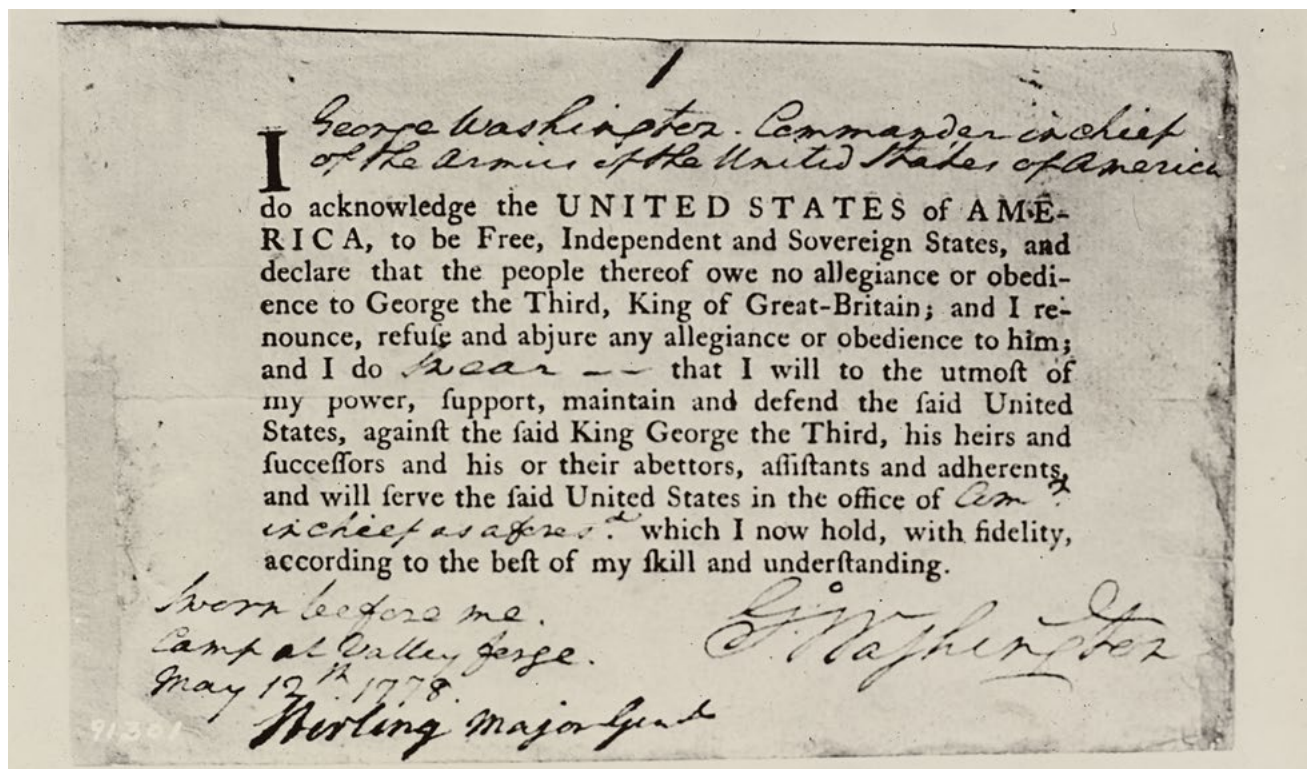 George Washington. Commander in chief
of the Armies of the United States of America
I
do acknowledge the UNITED STATES of AME-
RICA, to be Free, Independent and Sovereign States, and
declare that the people thereof owe no allegiance or obedi-
ence to George the Third, King of Great-Britain; and I re-
nounce, refuſe and abjure any allegiance or obedience to him;
and I do Swear -- that I will to the utmoſt of
my power, ſupport, maintain and defend the ſaid United
States, againſt the ſaid King George the Third, his heirs and
ſucceſſors and his or their abettors, aſſiſtants and adherents,
and will ſerve the ſaid United States in the office of Comr.
in chief as aforesd. which I now hold, with fidelity,
according to the beſt of my ſkill and underſtanding.
Sworn before me.
Camp at Valley forge.
May 12th. 1778.
Stirling Major Genl
Go. Washington
91301